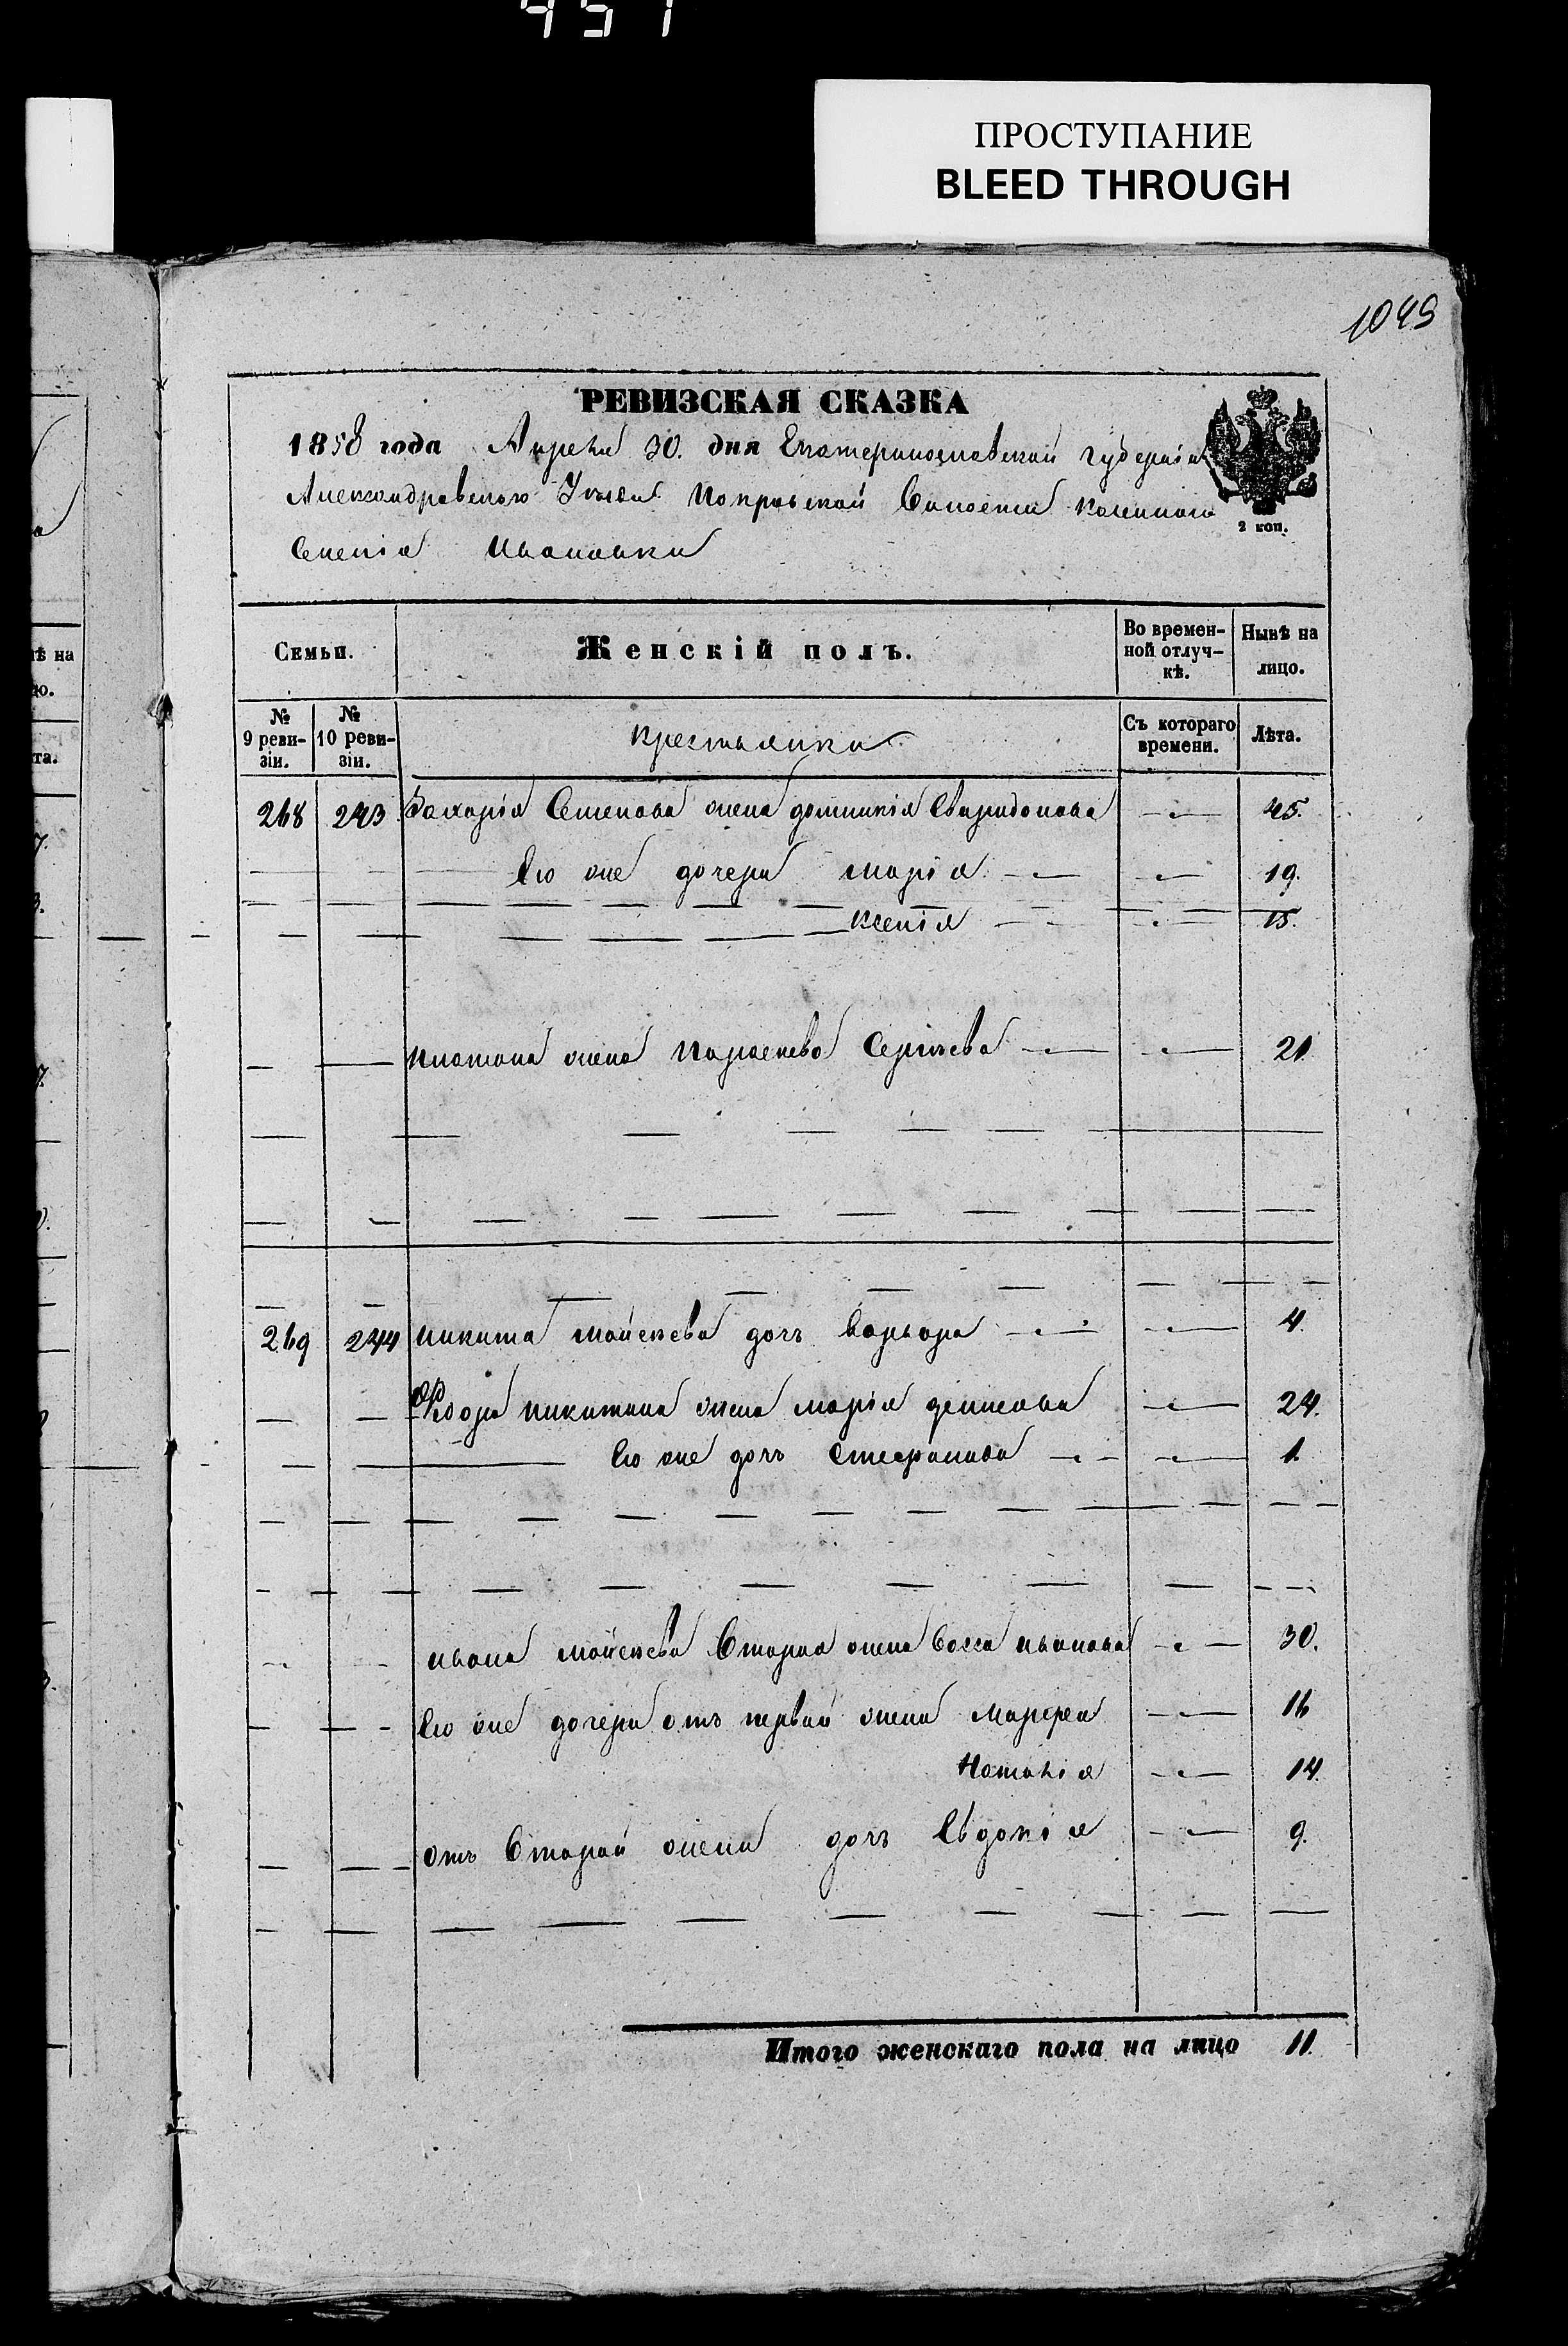 451
ПРОСТУПАНИЕ
BLEED THROUGH
1049
РЕВИЗСКАЯ СКАЗКА
1858 года Апреля 30. дня Екатеринославской губерніи
Александровскаго Уезда Покровской Волости казеннаго
Селенія Ивановки
2 коп.
Семьи. Женскій полъ. Во времен-ной отлуч-кѣ. Нынѣ на лицо.
№ 9 реви-зіи. № 10 реви-зіи. крестьянки Съ котораго времени. Лѣта.
268 243 Захарія Семенова жена домникія Свиридонова 45.
Его же дочери марія 19.
Ксенія 15.
платона жена Парасковья Сергѣева 21
269 244 никита мойсеева дочь варвара 4.
Федора никитина жена марія 24.
Его же дочь Стефанида 1.
ивана мойсеева Вторая жена Васса иванова 30.
Его же дочери отъ первой жени Марфеа 16
Наталія 14.
отъ Второй жени дочь Евдокія 9.
Итого женскаго пола на лицо 11.